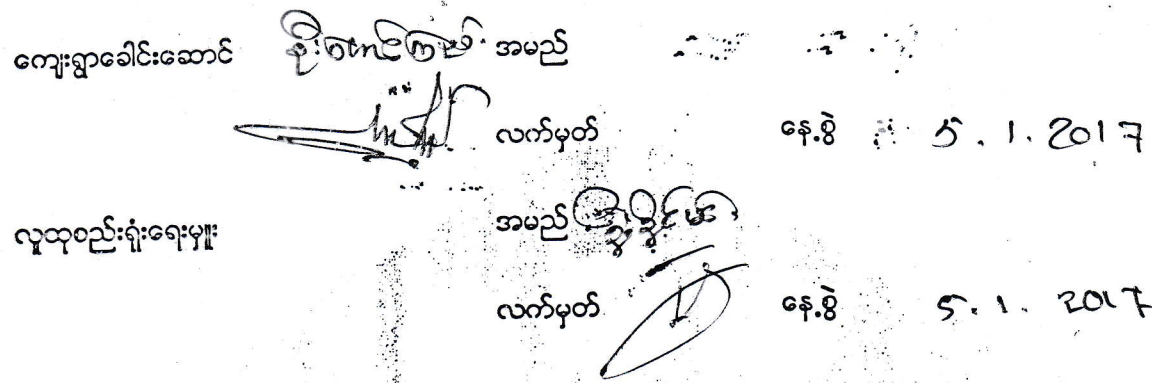 ကျေးရွာခေါင်းဆောင် အမည်
လက်မှတ် နေ့စွဲ 5.1.2017
လူထုစည်းရုံးရေးမှူး အမည်
လက်မှတ် နေ့စွဲ 5.1.2017